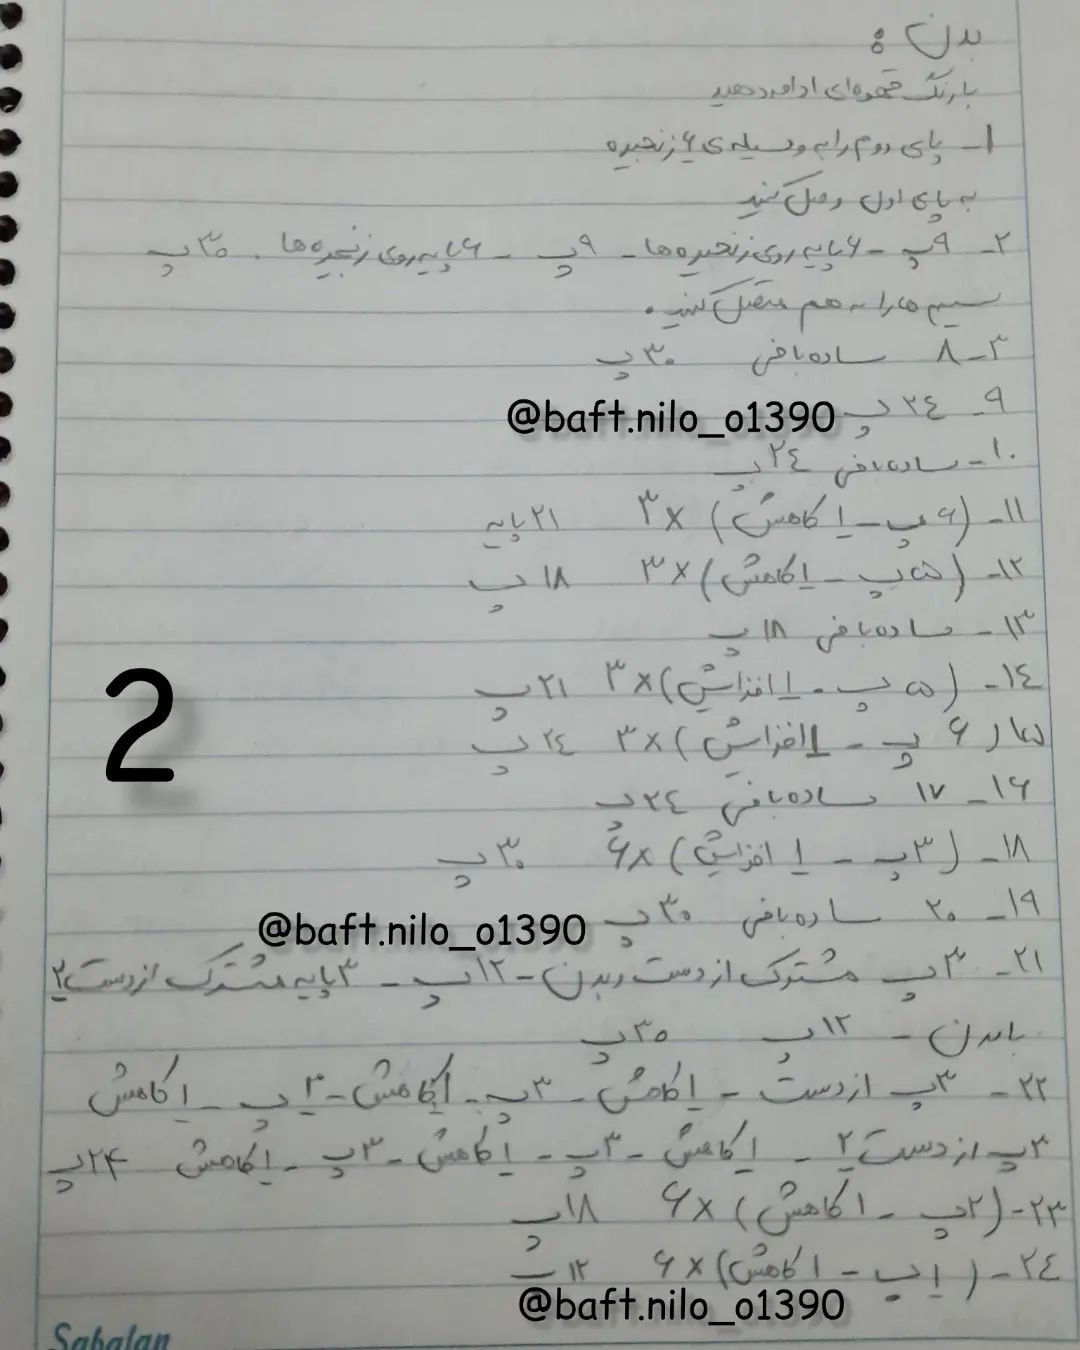 بدن :
با رنگ قهوه‌ای ادامه دهید
۱- پای دوم را به وسیله‌ی ۶ زنجیره
به پای اول وصل کنید
۲- ۹پ - ۶ پایه روی زنجیره ها - ۹پ - ۶ پایه روی زنجیره ها . ۳۰پ
سیم ها را به هم متصل کنید.
۳-۸ ساده بافی ۳۰پ
۹- ۲٤پ
@baft.nilo_o1390
۱۰- ساده بافی ۲٤پ
۱۱- (۶پ - ۱ کاهش) ×۳ ۲۱ پایه
۱۲- (۵پ - ۱ کاهش) ×۳ ۱۸پ
۱۳- ساده بافی ۱۸پ
۱٤- (۵پ - ۱ افزایش) ×۳ ۲۱پ
۱۵ (۶پ - ۱ افزایش) ×۳ ۲٤پ
2
۱۶- ۱۷ ساده بافی ۲٤پ
۱۸- (۳پ - ۱ افزایش) ×۶ ۳۰پ
۱۹- ۲۰ ساده بافی ۳۰پ
@baft.nilo_o1390
۲۱- ۳پ مشترک از دست و بدن - ۱۲پ - ۳ پایه مشترک از دست ۲
با بدن - ۱۲پ ۳۰پ
۲۲- ۳پ از دست - ۱ کاهش - ۳پ - ۱ کاهش - ۳پ - ۱ کاهش
۳پ از دست ۲ - ۱ کاهش - ۳پ - ۱ کاهش - ۳پ - ۱ کاهش ۲۴پ
۲۳- (۲پ - ۱ کاهش) ×۶ ۱۸پ
۲٤- (۱پ - ۱ کاهش) ×۶ ۱۲پ
@baft.nilo_o1390
Sabalan